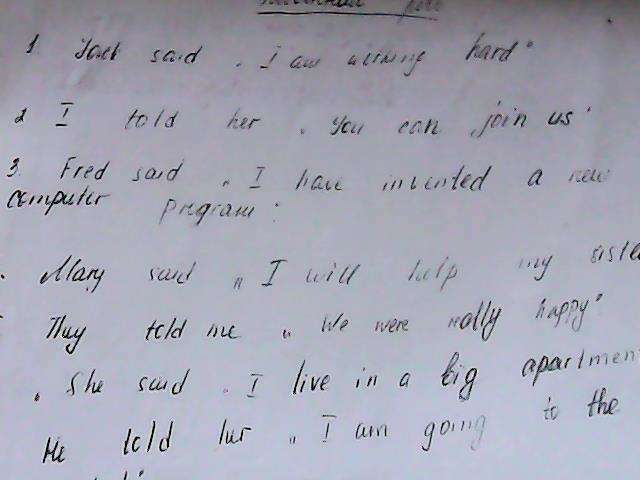 1. Jack said „I am working hard"
2 I told her „You can join us"
3. Fred said „I have invented a new
computer program"
Mary said „I will help my siste
They told me „We were really happy"
She said „I live in a big apartmen
He told her „I am going to the